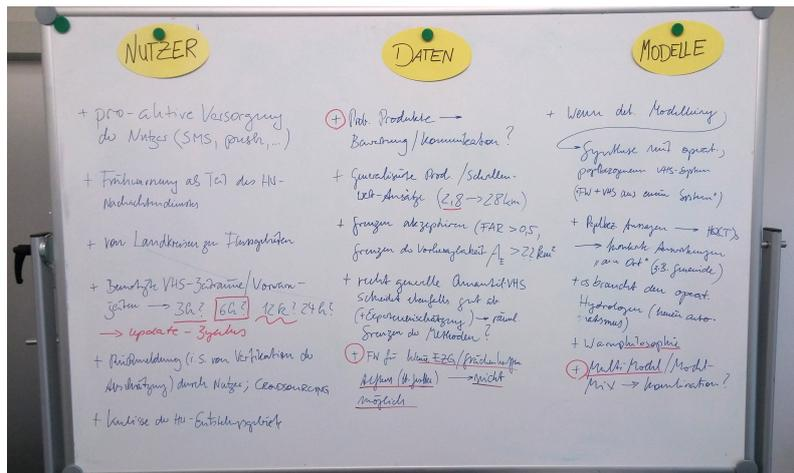 NUTZER
+ pro-aktive Versorgung
der Nutzer (SMS, push, ...)
+ Frühwarnung als Teil des HW-
Nachrichtendienstes
+ von Landkreisen zu Flussgebieten
+ Benötigte VHS-Zeiträume / Vorwarn-
zeiten → 3h? 6h? 12h? 24h?
→ update-Zyklus
+ Rückmeldung (i.S. von Verifikation der
Abschätzung) durch Nutzer; CROWDSOURCING
+ Kulisse der HW-Entstehungsgebiete
DATEN
+ Prob. Produkte →
Bewertung / Kommunikation?
+ Generalisierte Prod. / Schwellen-
wert-Ansätze (2,8 → 28km)
+ Grenzen akzeptieren (FAR > 0,5,
Grenzen der Vorhersagbarkeit
+ recht generelle Quantil-VHS
scheidet ebenfalls gut ab
(+ Experteneinschätzung) → räuml.
Grenzen der Methoden?
+ FW für kleine EZG /
→ nicht
möglich
MODELLE
+ Wenn det. Modellierung,
→ Synthese mit operat.,
pegelbezogenem VHS-System
("FW + VHS aus einem System")
+ Pegelbez. Aussagen → HQ(T)
→ konkrete Auswirkungen
"am Ort" (z.B. Gemeinde)
+ es braucht den operat.
Hydrologen (keinen Auto-
matismus)
+ Warnphilosophie
+ Multi Model / Modell-
Mix → Kombination?